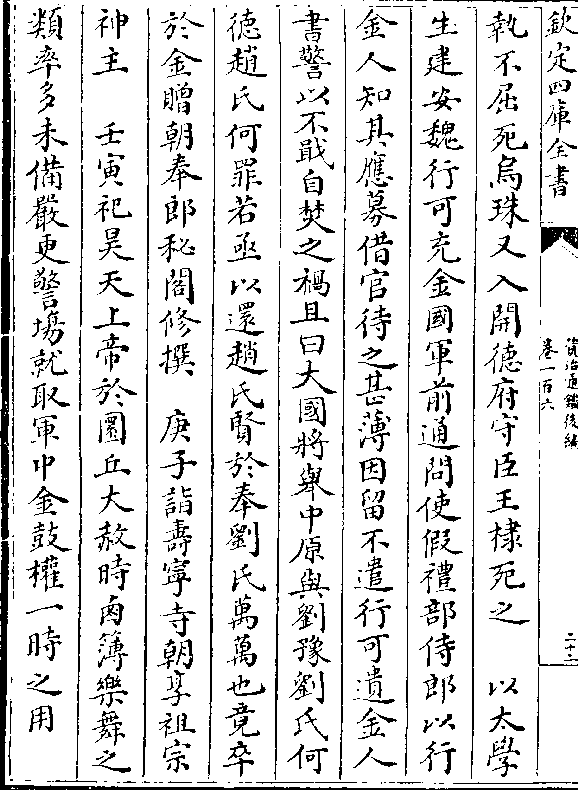 欽定四庫全書
資治通鑑後編
卷一百六
二十二
執不屈死烏珠又入開德府守臣王棣死之　以太學
生建安魏行可充金國軍前通問使假禮部侍郎以行
金人知其應募借官待之甚薄因留不遣行可遺金人
書警以不戢自焚之禍且曰大國將舉中原與劉豫劉氏何
德趙氏何罪若亟以還趙氏賢於奉劉氏萬萬也竟卒
於金贈朝奉郎秘閣修撰　庚子詣壽寧寺朝享祖宗
神主　壬寅祀昊天上帝於圜丘大赦時鹵簿樂舞之
類率多未備嚴更警場就取軍中金鼓權一時之用